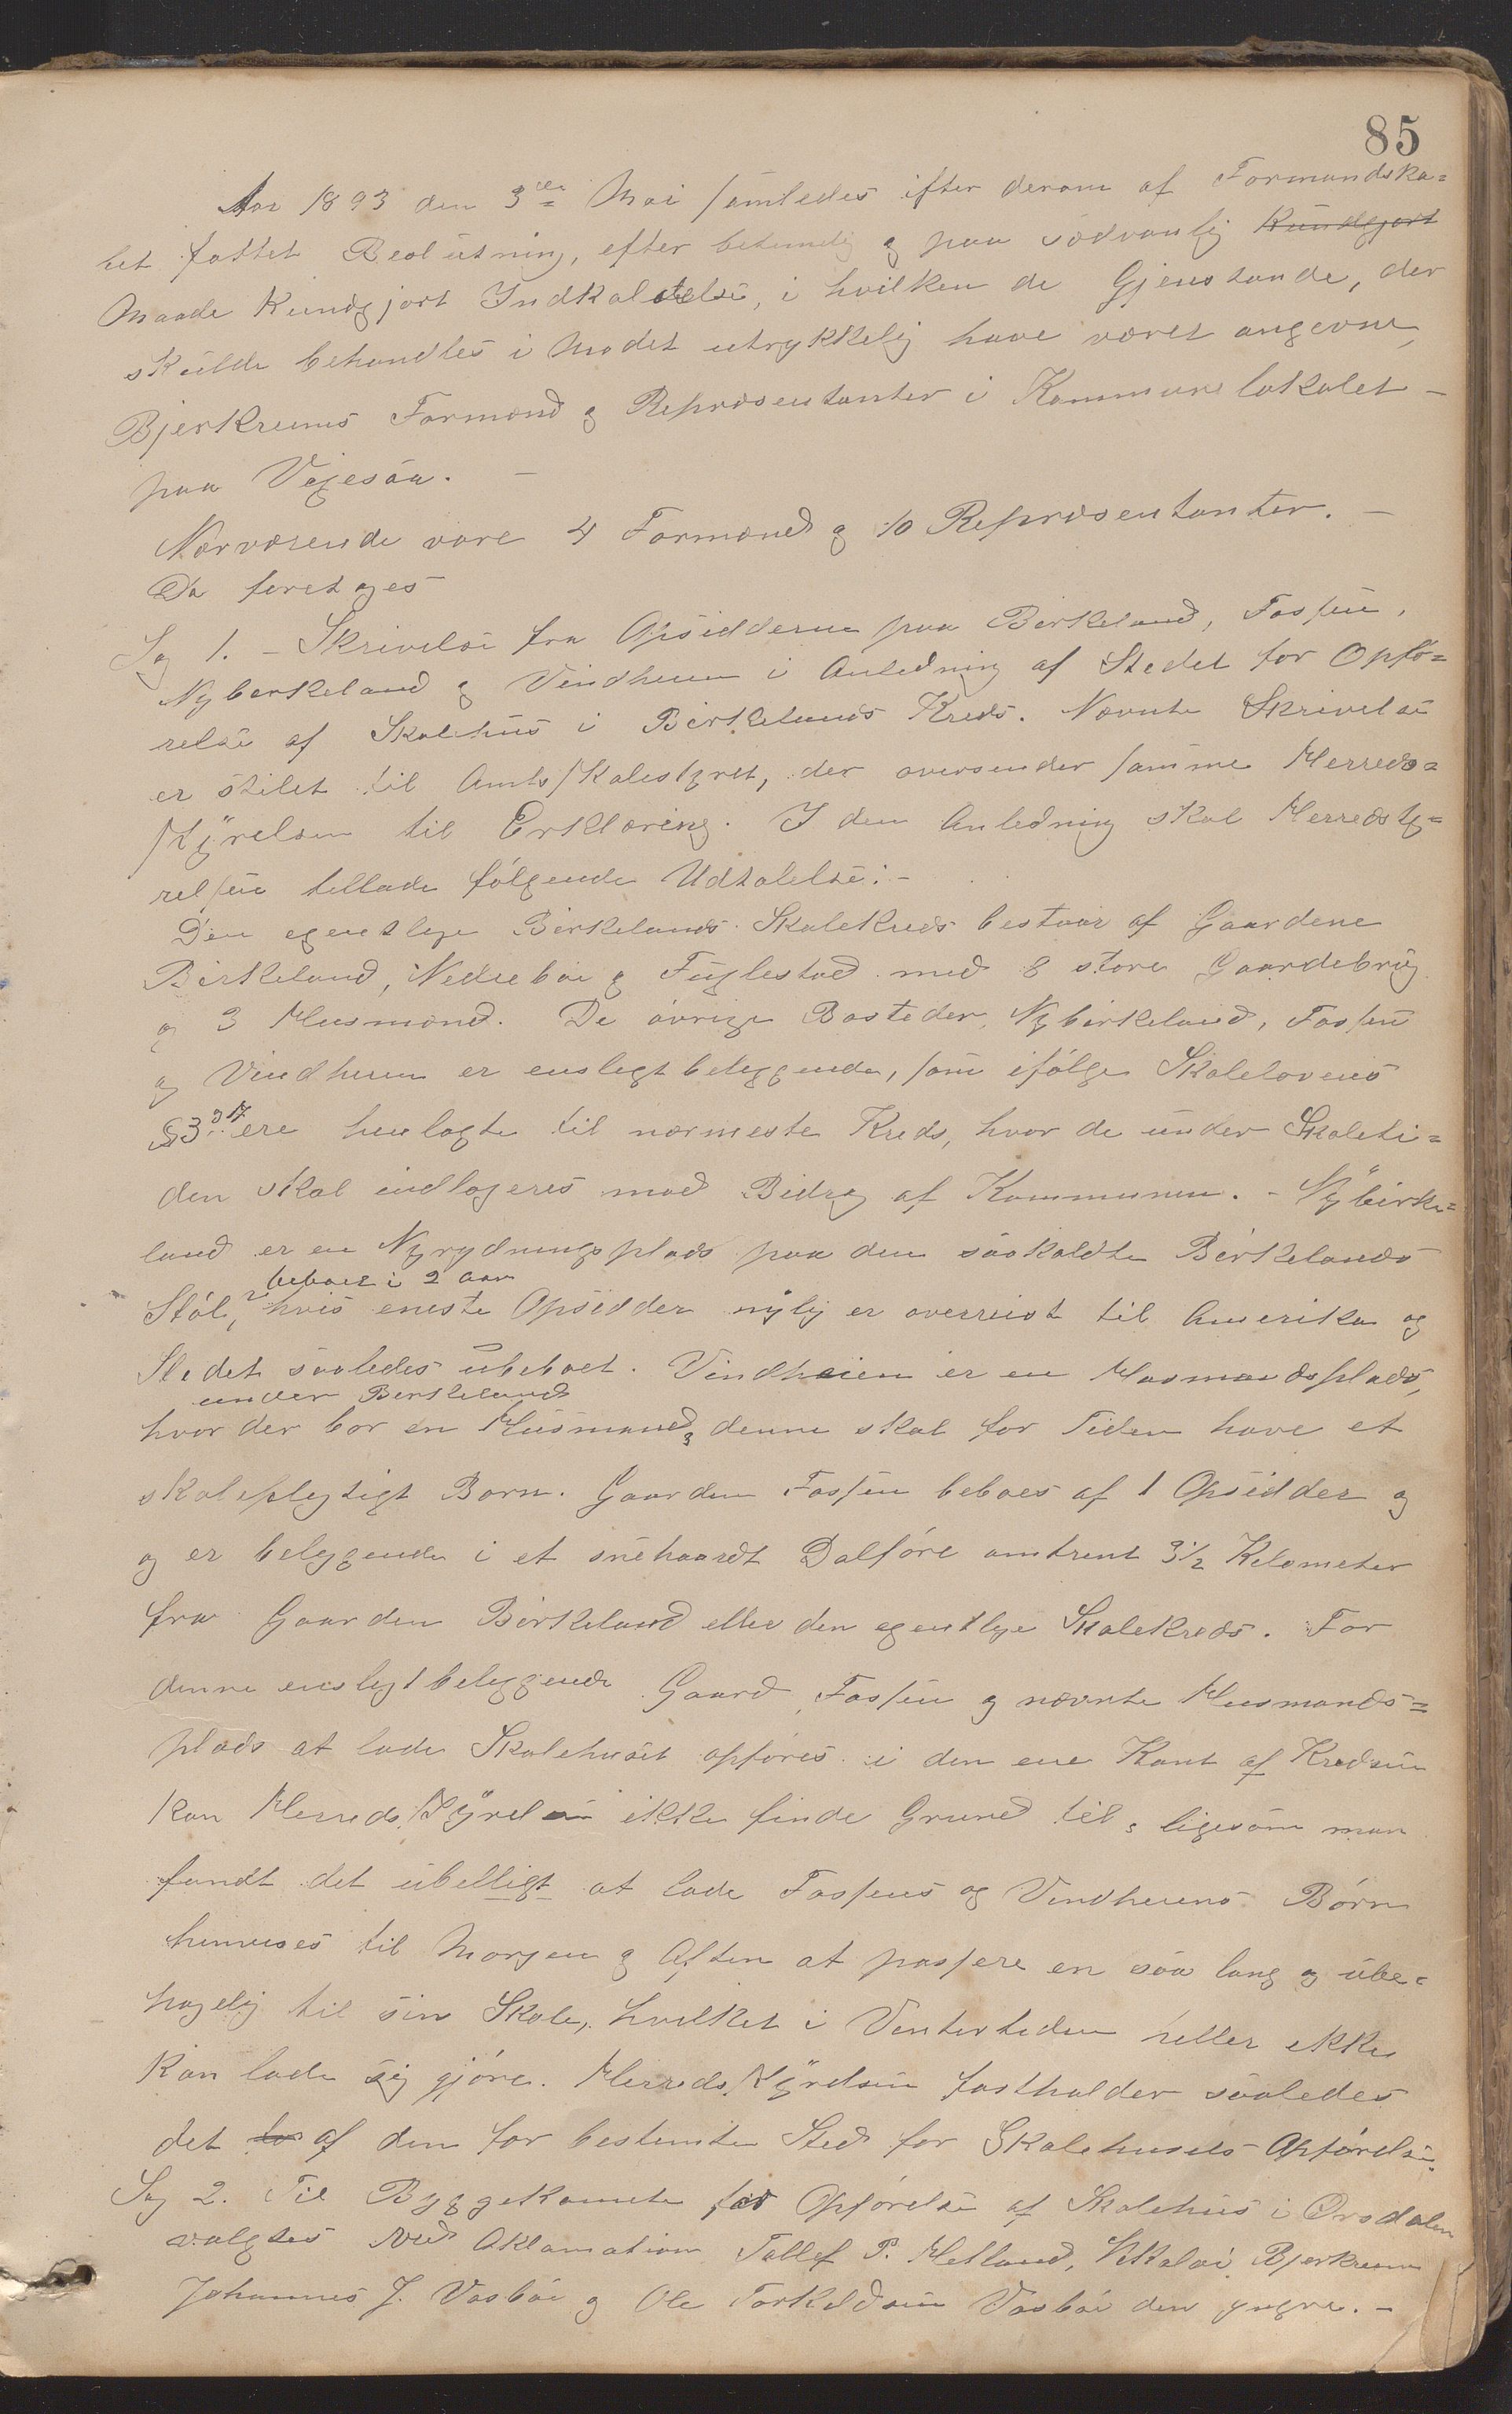 85
Aar 1893 den 3die Mai samledes efter derom af Formandska=
bet fattet Beslutning, efter betimelig og paa sædvanlig Kundgjort
Maade Kundgjort Indkaldelse, i hvilken de Gjenstande, der
skulde behandles i Mødet utrykkelig have været angevne,
Bjerkreims Formænd og Repræsentanter i Kommunelokalet -
paa Vigesaa. -
Nærværende vare 4 Formænd og 10 Repræsentanter. -
Da foretoges
Sag 1. - Skrivelse fra Opsidderne paa Birkeland, Fossen,
Nyberkeland og Vindheien i Anledning af Stedet for Opfø=
relse af Skolehus i Birkelands Kreds. Nævnte Skrivelse
er stilet til Amtsskolestyret, der oversender samme Herreds=
styrelsen til Erklæring. I den Anledning skal Herredsty=
relsen tillade følgende Udtalelse: -
Den egentlige Birkelands Skolekreds bestaar af Gaardene
Birkeland, Nedrebø og Fuglestad med 8 store Gaardebrug
og 3 Husmænd. De øvrige Bosteder, Nybirkeland, Fossen
og Vindheien er ensligt beliggende, som ifølge Skolelovens
§3 ere henlagte til nærmeste Kreds, hvor de under Skoleti=
den skal indlogeres mod Bidrag af Kommunen. - Nybirke=
land er en Nyrydningsplads paa den saakaldte Birkelands
beboet i 2 Aar
Støl, hvis eneste Opsidder nylig er overreist til Amerika og
Stedet saaledes ubeboet. Vindheien er en Husmandsplads,
under Berkeland
hvor der bor en Husmand, denne skal for Tiden have et
skolepligtigt Barn. Gaarden Fossen beboes af 1 Opsidder og
og er beliggende i et snehaardt Dalføre omtrent 3½ Kilometer
fra Gaarden Birkeland eller den egentlige Skolekreds. For
denne ensligt beliggende Gaard Fossen og nævnte Husmands=
plads at lade Skolehuset opføres i den ene Kant af Kredsen
kan Herredsstyrelsen ikke finde Grund til, ligesom man
fandt det ubelligt at lade Fossens og Vindheiens Børn
henvises til Morgen og Aften at passere en saa lang og ube=
hagelig til sin Skole, hvilket i Vintertiden heller ikke
kan lade sig gjøre. Herredsstyrelsen fastholder saaledes
det af den før bestemte Sted for Skolehusets Opførelse.
Sag 2. Til Byggekomite for Opførelse af Skolehus i Ørsdalen
valgtes ved Aklamation Tallef P. Hetland, Bjerkreim
Johannes J. Vasbø og Ole Torkildsen Vasbø den yngre. -